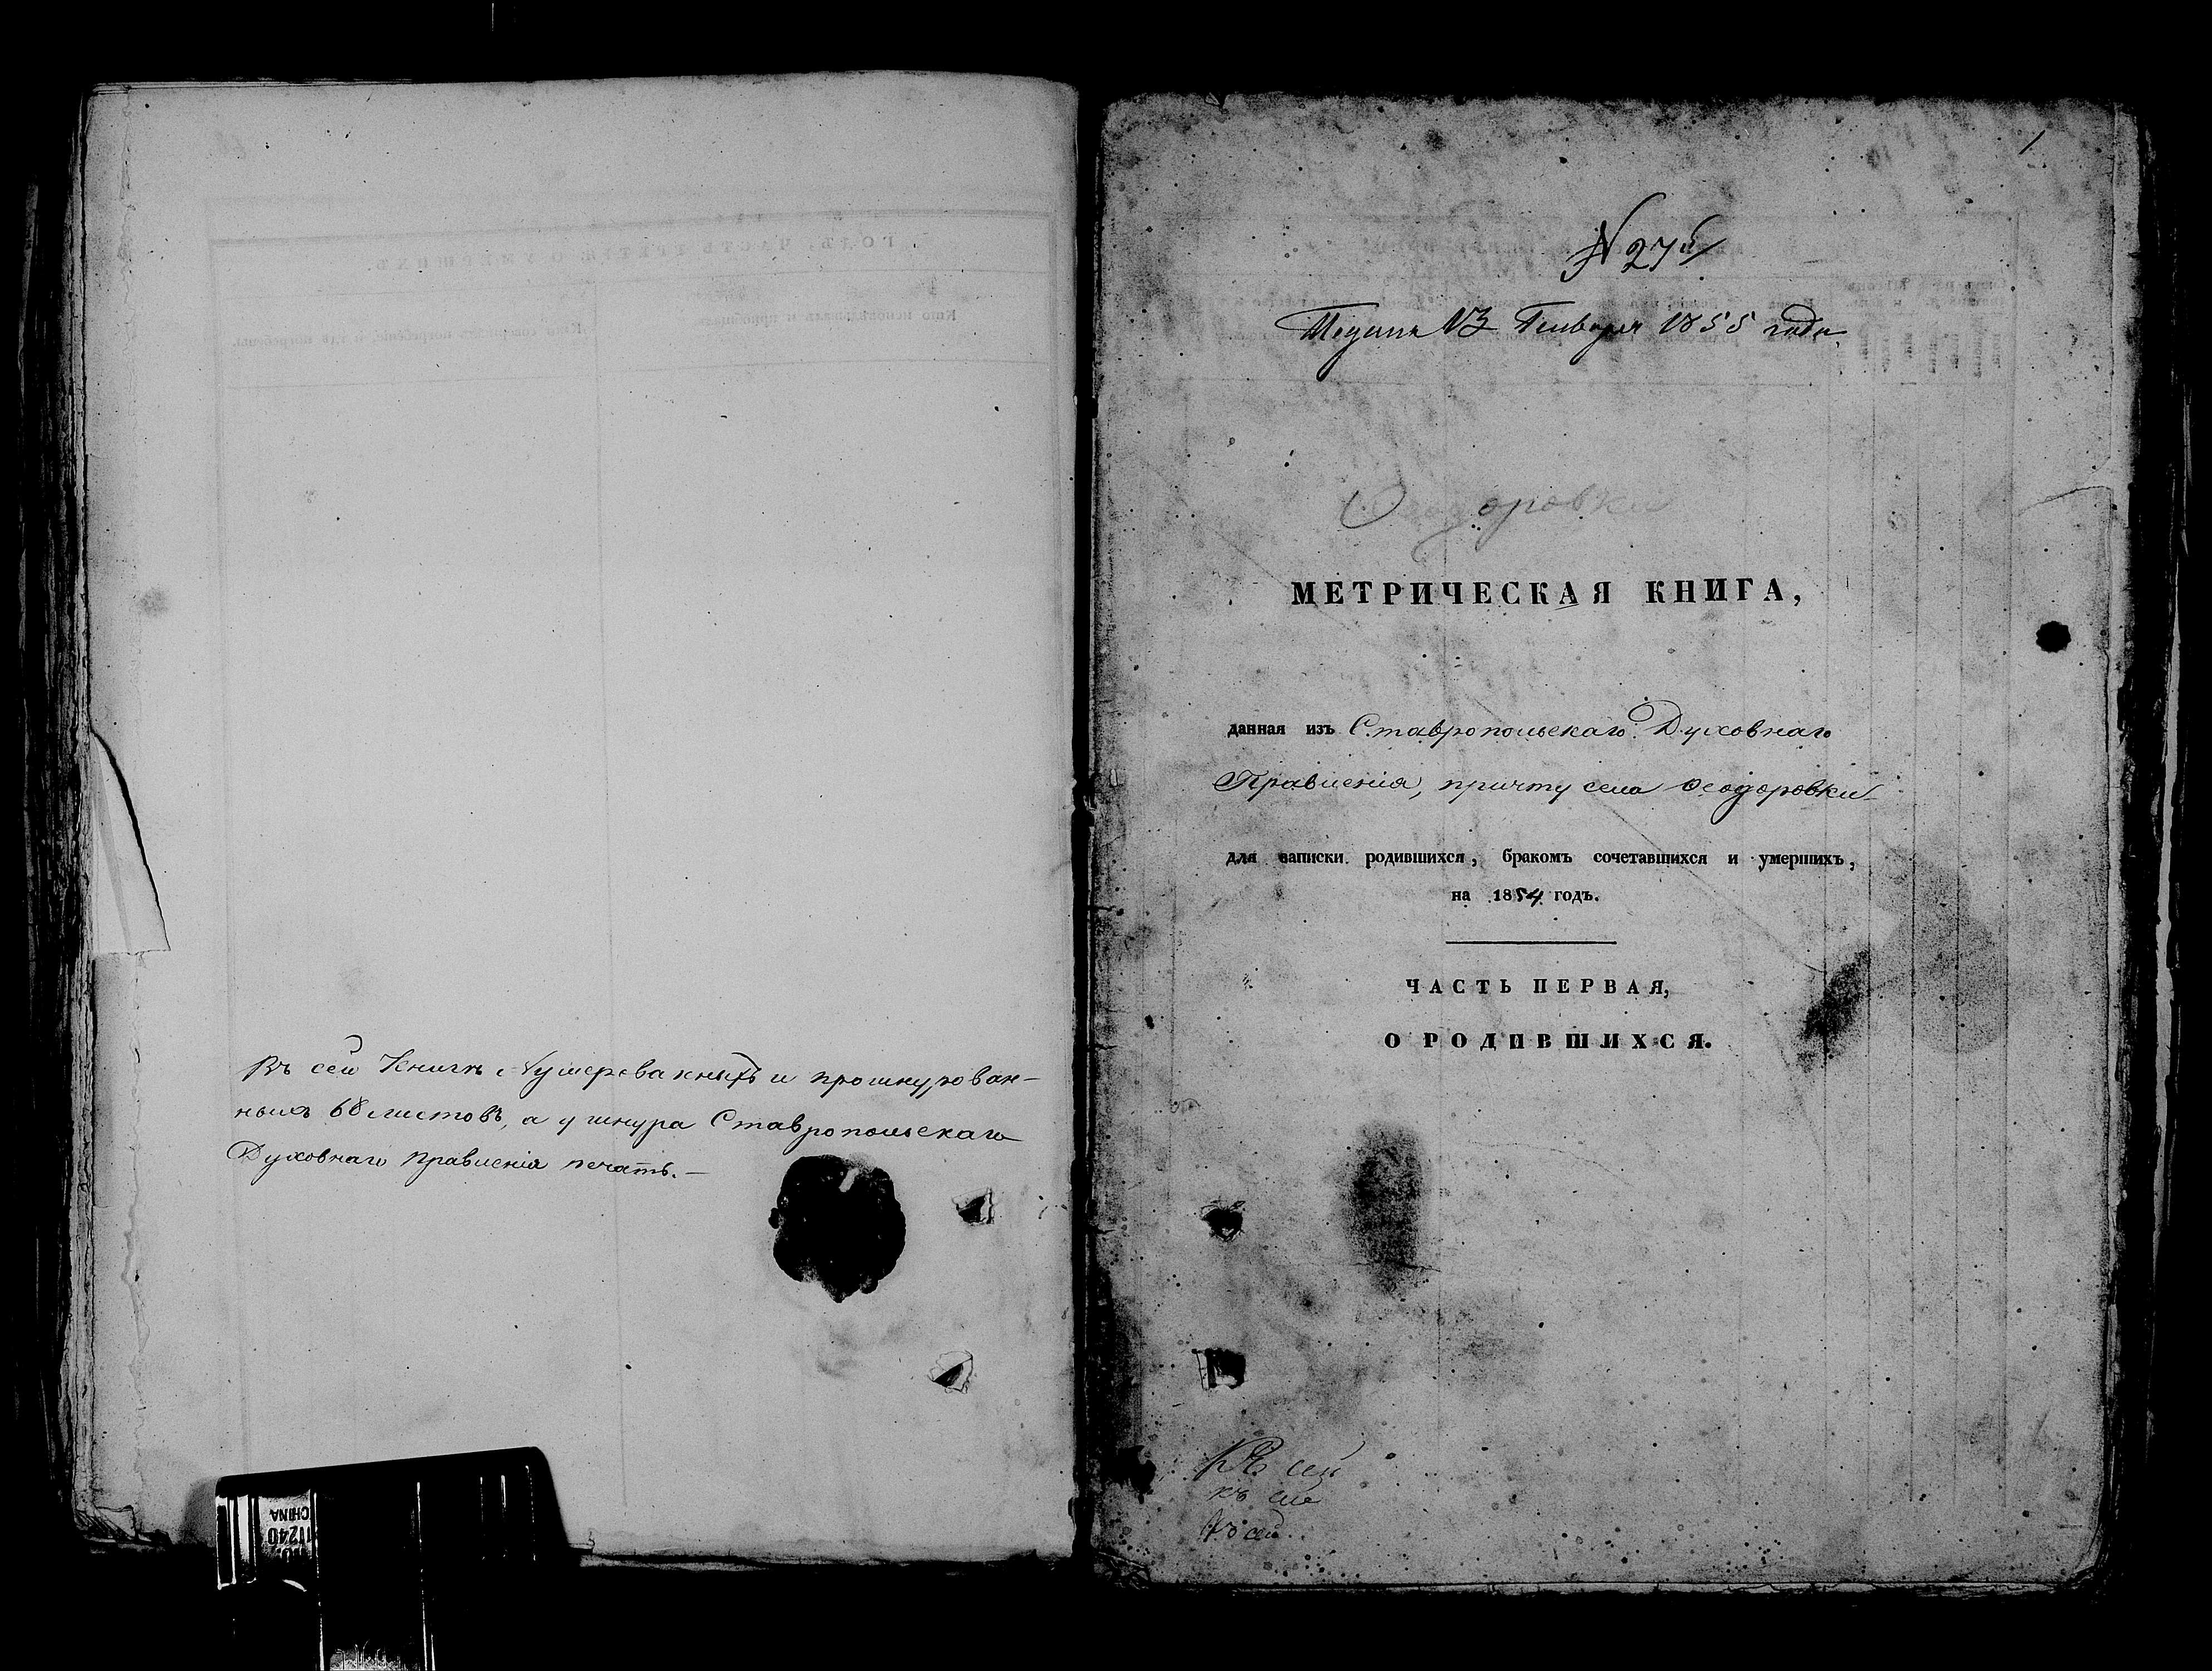 Въ сей Книгѣ Нумерованныхъ и прошнурован-
ныхъ 68 листовъ, а у шнура Ставропольскаго
Духовнаго Правленія печать.—
1
N 275
Января 1855 года.
Ѳеодоровки
МЕТРИЧЕСКАЯ КНИГА,
данная изъ Ставропольскаго Духовнаго
Правленія, причту села Ѳеодоровки
для записки родившихся, бракомъ сочетавшихся и умершихъ,
на 1854 годъ.
ЧАСТЬ ПЕРВАЯ,
О РОДИВШИХСЯ.
Къ сей
къ сие
Къ сей
CHINA
11240